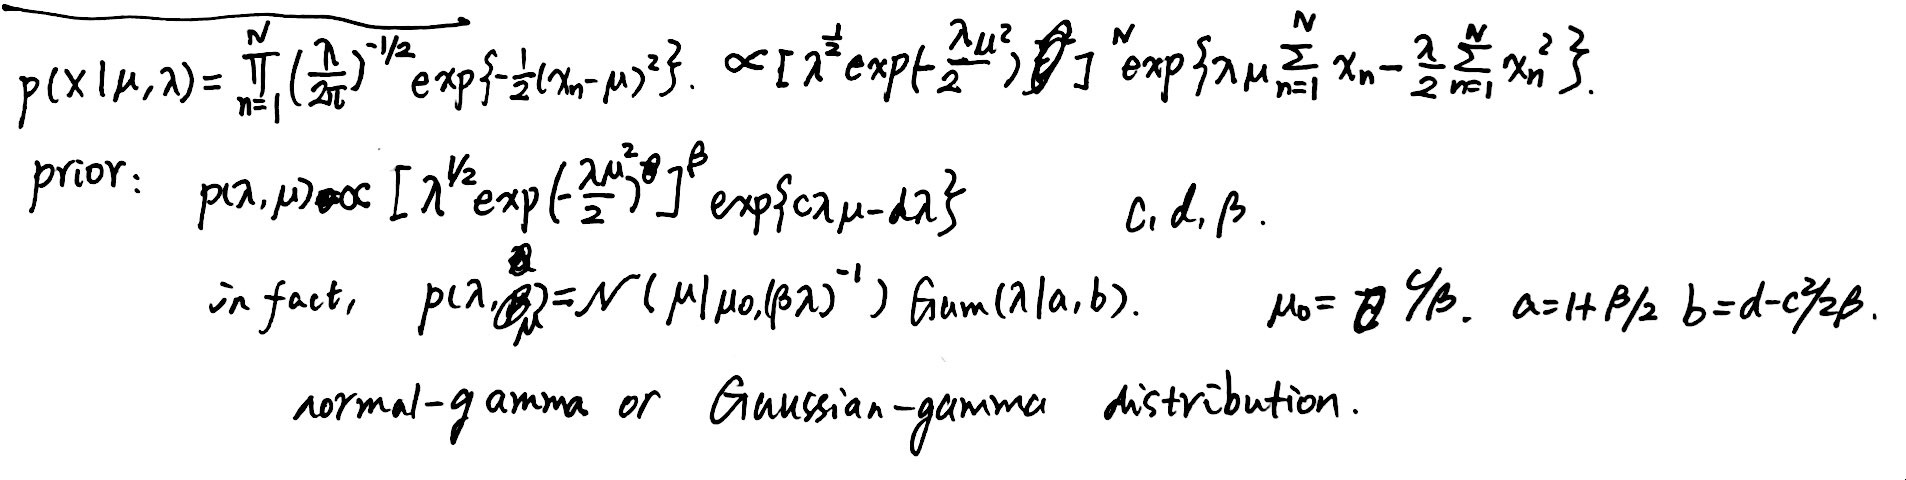 p(X|μ,λ)=∏_{n=1}^{N}(λ/2π)^{-1/2}exp{-1/2(x_n-μ)^2}. ∝[λ^{1/2}exp(-λμ^2/2)]^N exp{λμ∑_{n=1}^{N}x_n-λ/2∑_{n=1}^{N}x_n^2}.
prior: p(λ,μ)∝[λ^{1/2}exp(-λμ^2/2)]^β exp{cλμ-dλ} c,d,β.
in fact, p(λ,μ)=N(μ|μ_0,(βλ)^{-1})Gam(λ|a,b). μ_0=c/β. a=1+β/2 b=d-c^2/2β.
normal-gamma or Gaussian-gamma distribution.